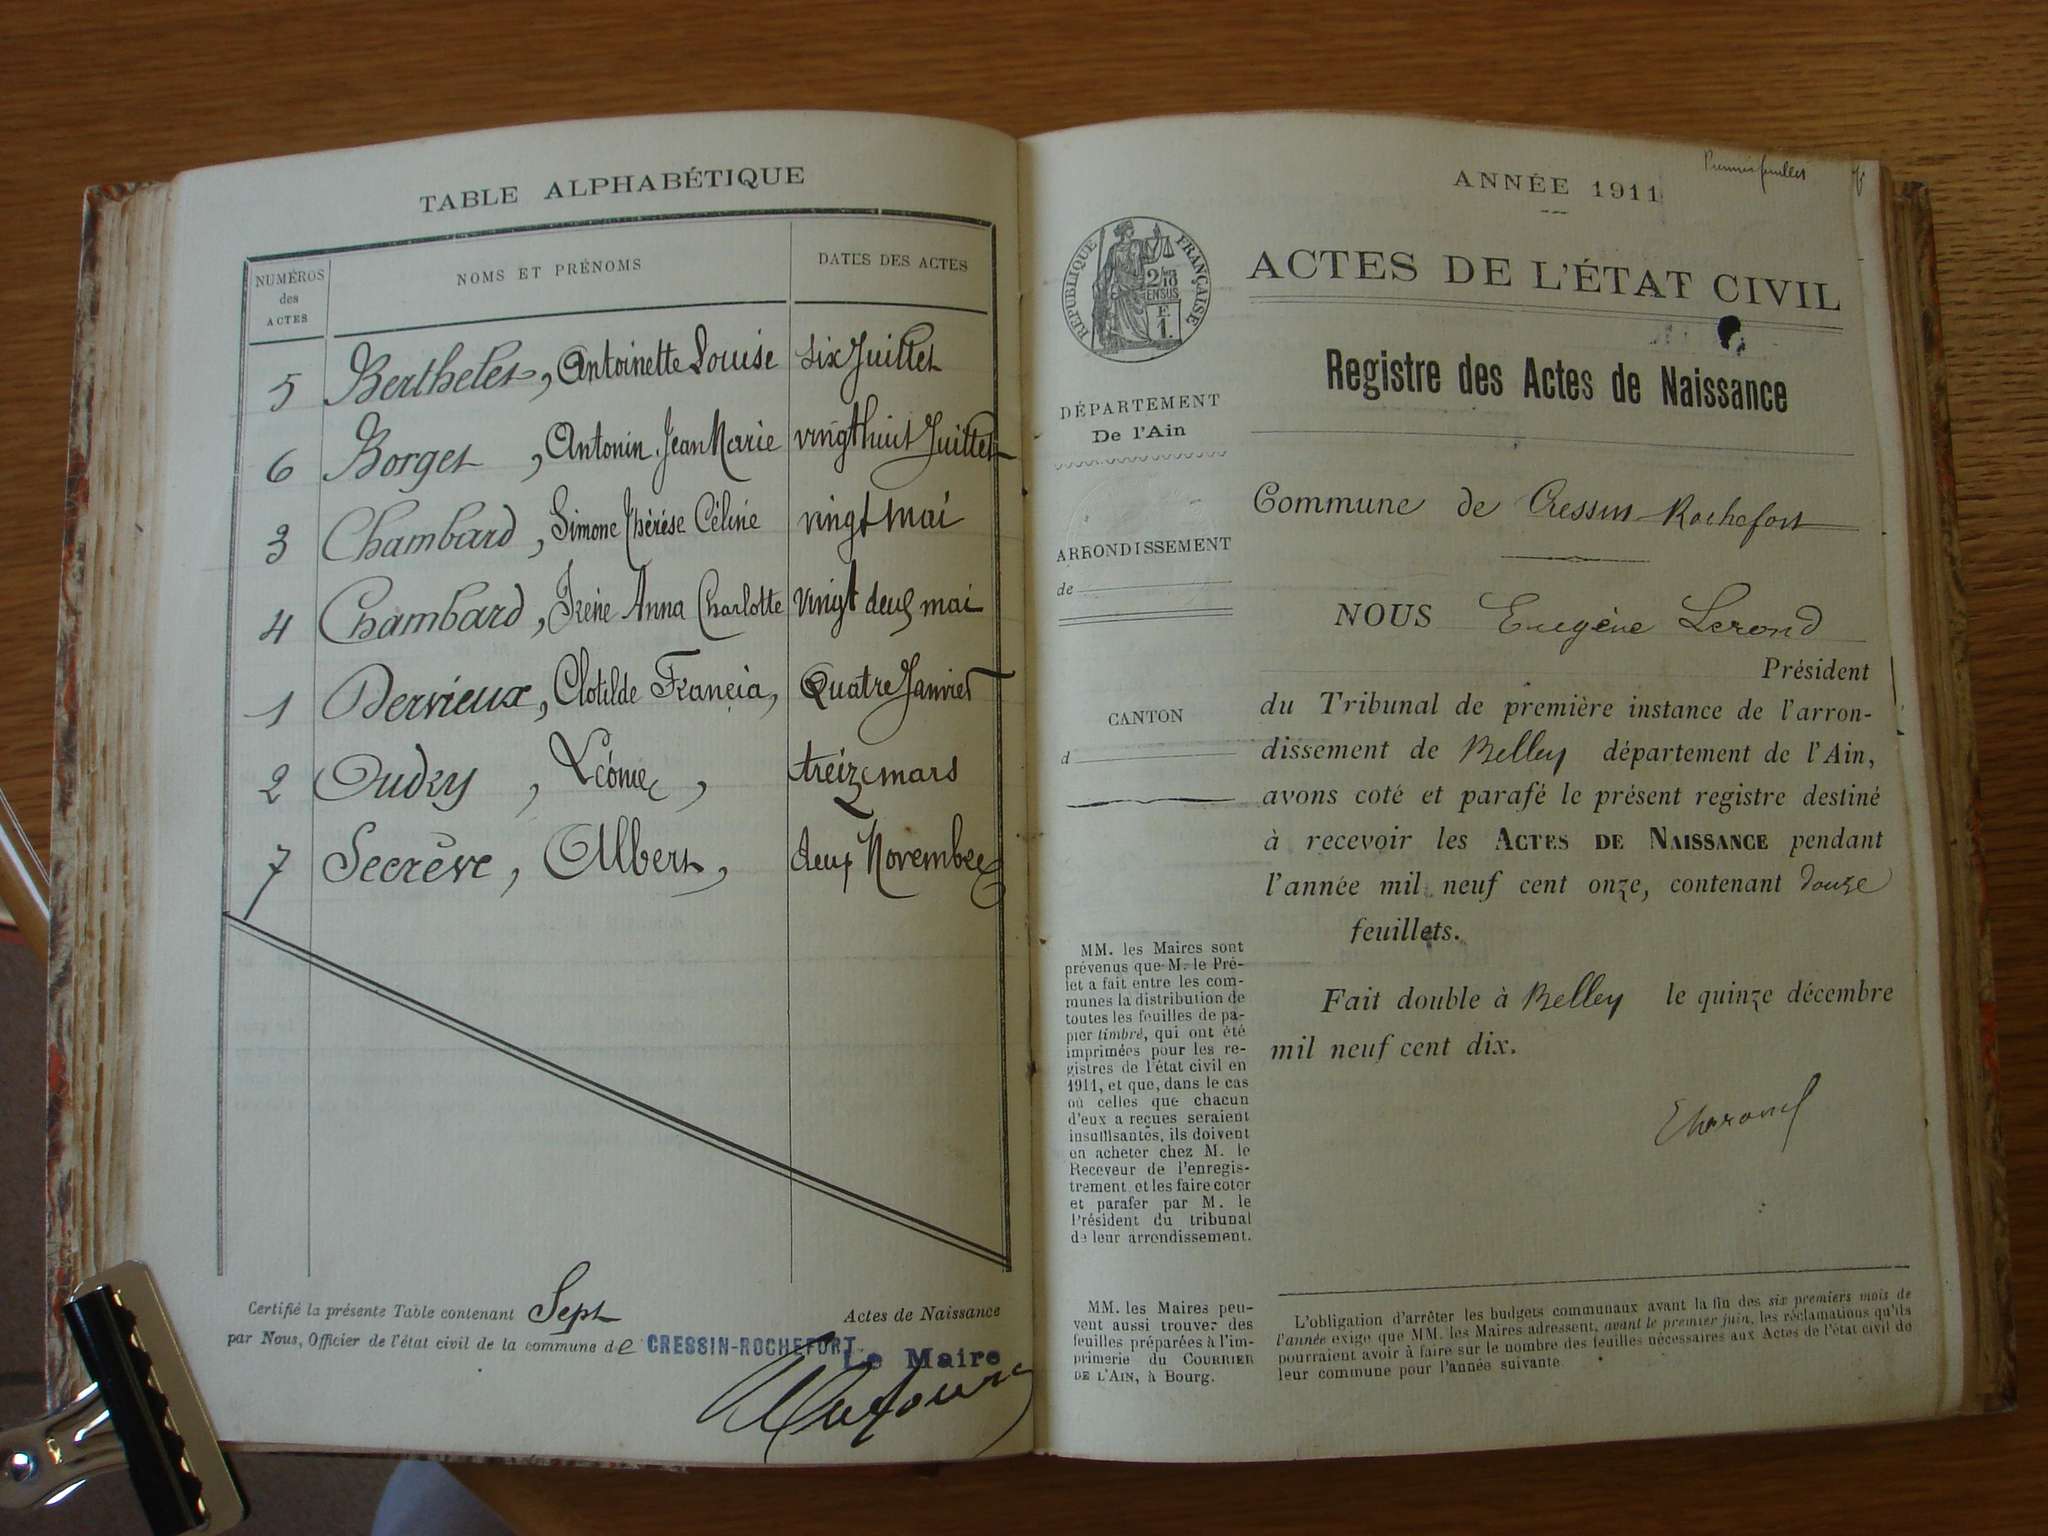 TABLE ALPHABÉTIQUE
NUMÉROS des ACTES NOMS ET PRÉNOMS DATES DES ACTES
5 Berthelet, Antoinette Louise six Juillet
6 Borget, Antonin Jean Marie vingt huit Juillet
3 Chambard, Simone Thérèse Céline vingt mai
4 Chambard, Irène Anna Charlotte vingt deux mai
1 Dervieux, Clotilde Francia, Quatre Janvier
2 Oudry, Léonie, treize mars
7 Secrève, Albert, deux Novembre
Certifié la présente Table contenant Sept Actes de Naissance
par Nous, Officier de l'état civil de la commune de CRESSIN-ROCHEFORT
Le Maire
Premier feuillet
ANNÉE 1911
RÉPUBLIQUE FRANÇAISE
2/10 EN SUS
F.
1.
ACTES DE L'ÉTAT CIVIL
Registre des Actes de Naissance
DÉPARTEMENT
De l'Ain
ARRONDISSEMENT
de
CANTON
d
Commune de Cressin Rochefort
NOUS Eugène Lerond
Président
du Tribunal de première instance de l'arron-
dissement de Belley département de l'Ain,
avons coté et parafé le présent registre destiné
à recevoir les ACTES DE NAISSANCE pendant
l'année mil neuf cent onze, contenant douze
feuillets.
Fait double à Belley le quinze décembre
mil neuf cent dix.
MM. les Maires sont
prévenus que M. le Pré-
fet a fait entre les com-
munes la distribution de
toutes les feuilles de pa-
pier timbré, qui ont été
imprimées pour les re-
gistres de l'état civil en
1911, et que, dans le cas
où celles que chacun
d'eux a reçues seraient
insuffisantes, ils doivent
en acheter chez M. le
Receveur de l'enregis-
trement et les faire coter
et parafer par M. le
Président du tribunal
de leur arrondissement.
MM. les Maires peu-
vent aussi trouver des
feuilles préparées à l'im-
primerie du COURRIER
DE L'AIN, à Bourg.
L'obligation d'arrêter les budgets communaux avant la fin des six premiers mois de
l'année exige que MM. les Maires adressent, avant le premier juin, les réclamations qu'ils
pourraient avoir à faire sur le nombre des feuilles nécessaires aux Actes de l'état civil de
leur commune pour l'année suivante.